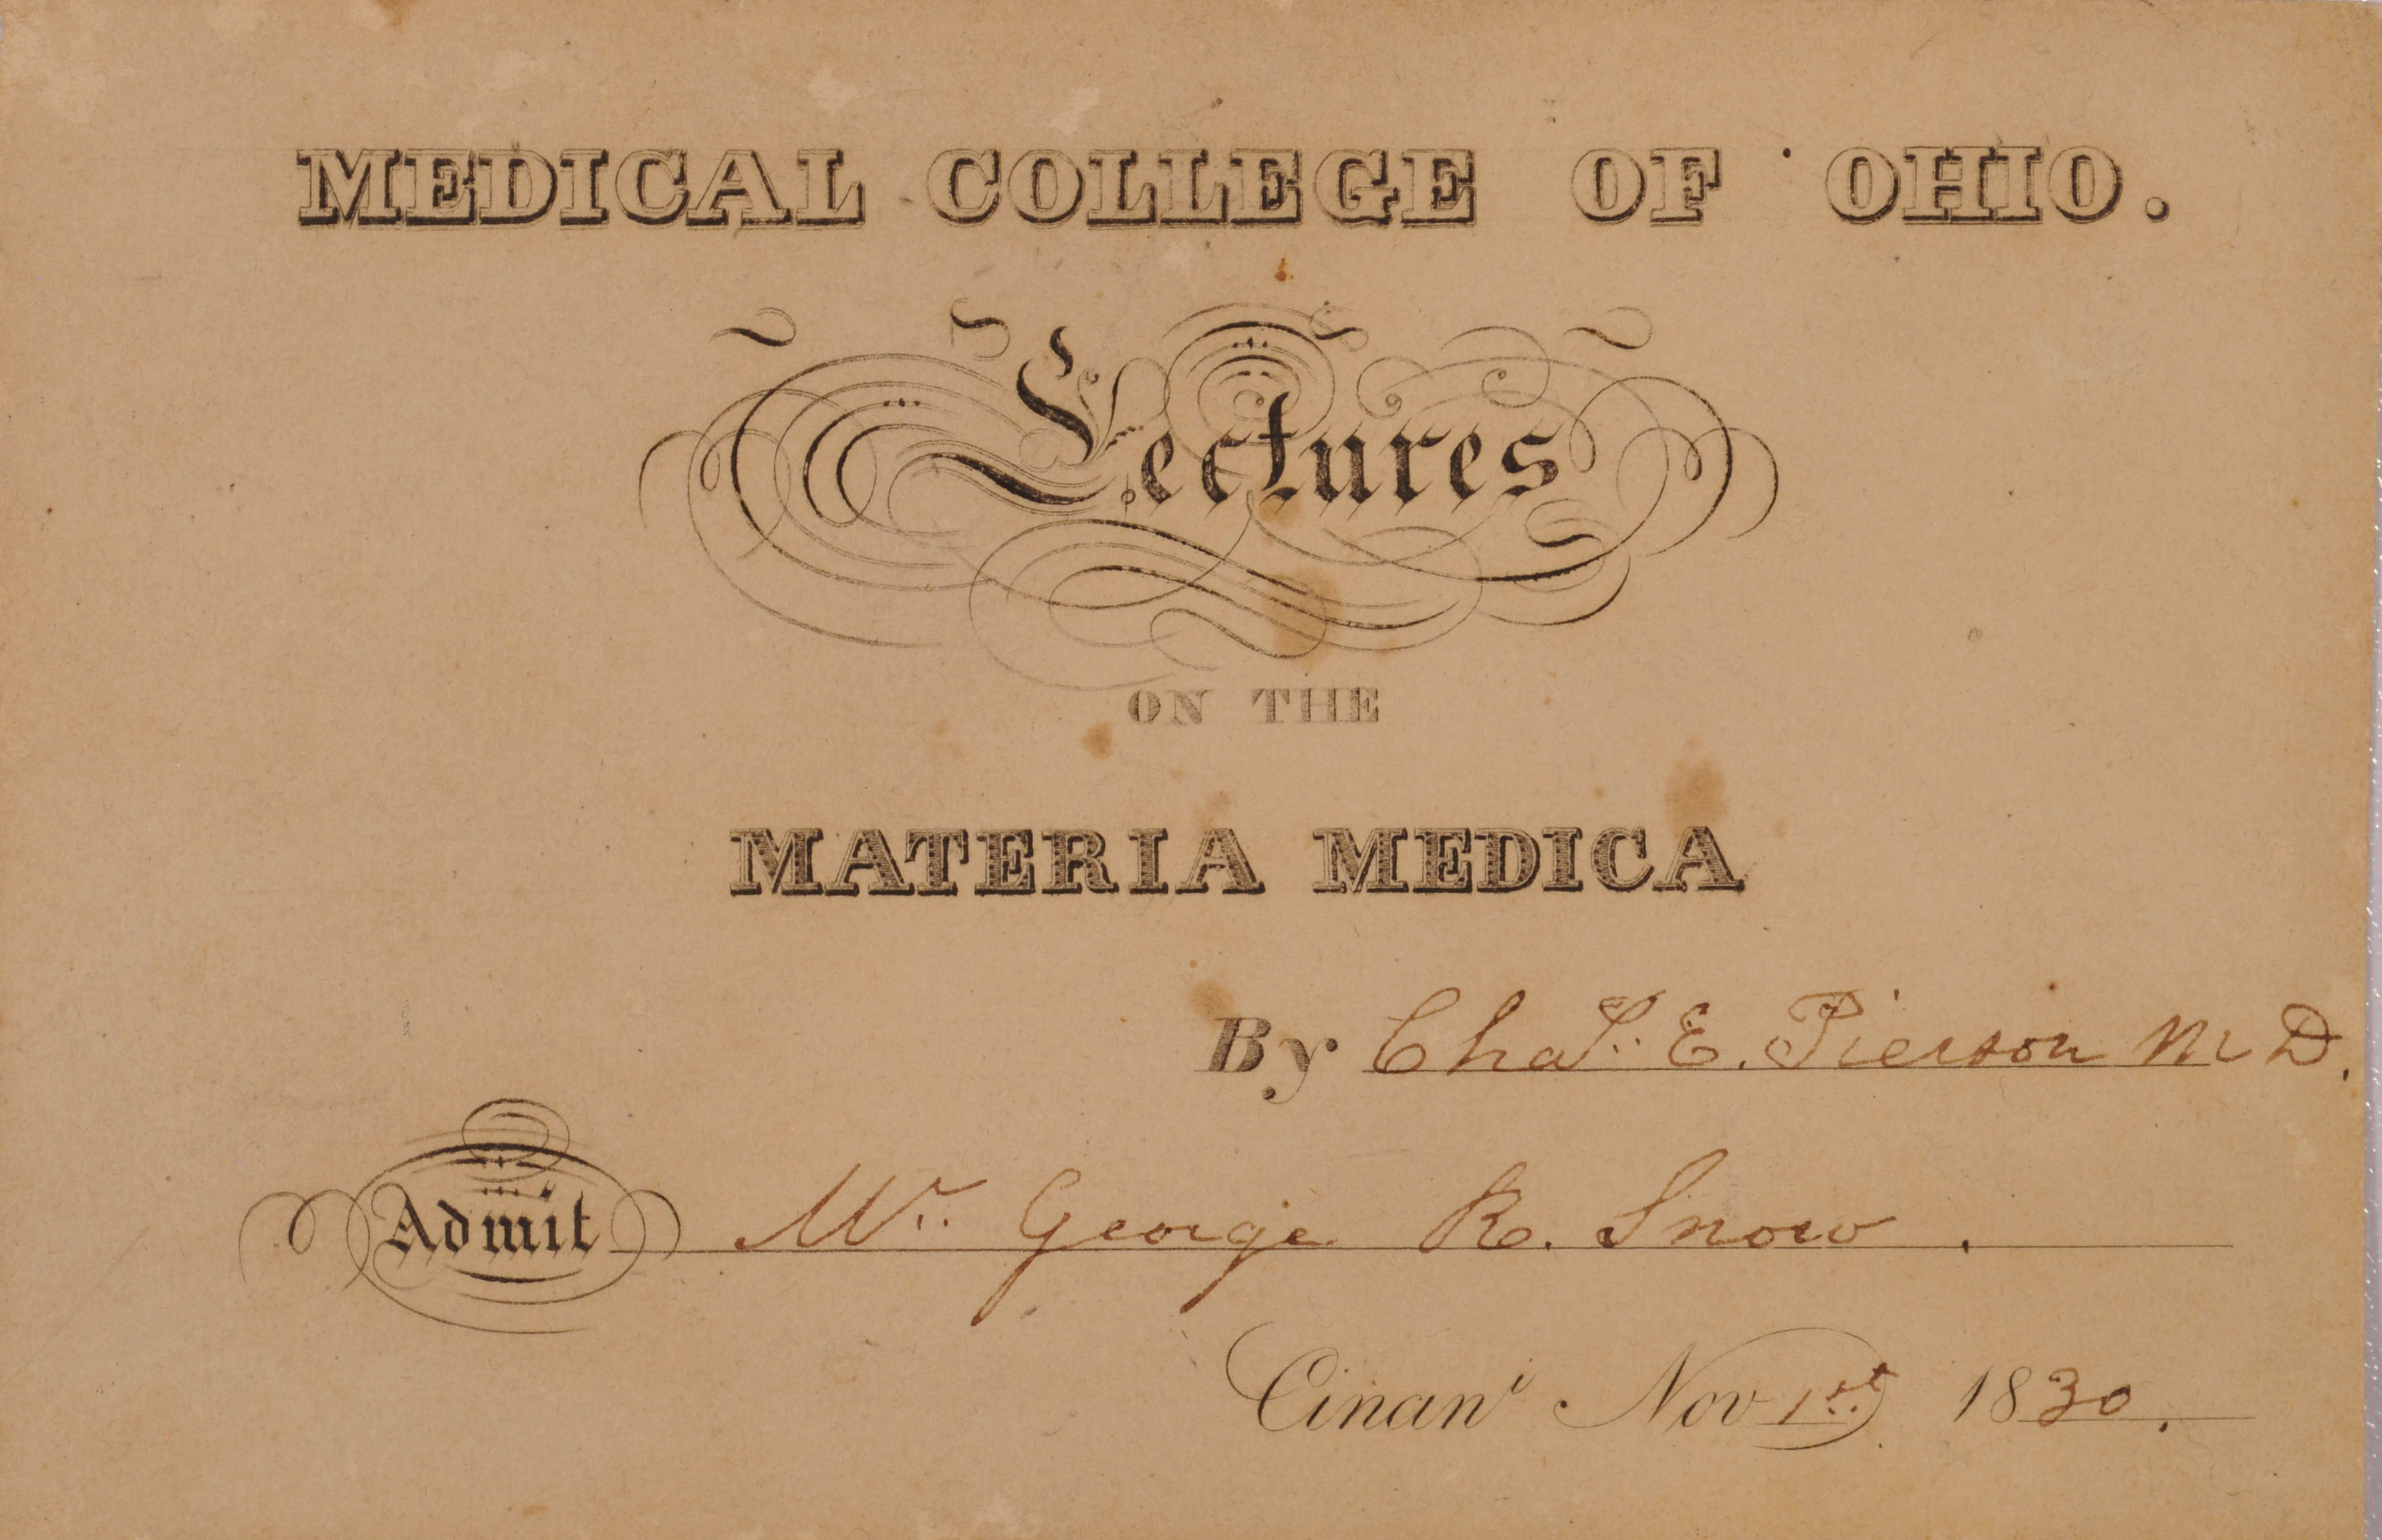 MEDICAL COLLEGE OF OHIO.
Lectures
ON THE
MATERIA MEDICA
By Chas. E. Pierson M D.
Admit Mr. George R. Snow.
Cinani Nov 1st 1830.